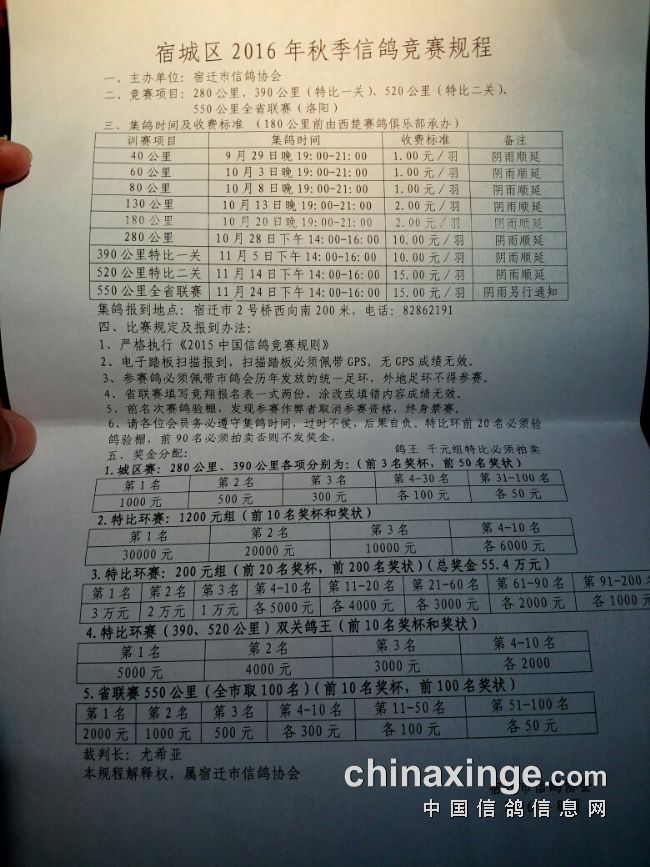 宿城区 2016 年秋季信鸽竞赛规程
一、主办单位：宿迁市信鸽协会
二、竞赛项目：280公里、390公里（特比一关）、520公里（特比二关）、
550公里全省联赛（洛阳）
三、集鸽时间及收费标准 （180公里前由西楚赛鸽俱乐部承办）
训赛项目 集鸽时间 收费标准 备注
40公里 9月29日晚19:00-21:00 1.00元/羽 阴雨顺延
60公里 10月3日晚19:00-21:00 1.00元/羽 阴雨顺延
80公里 10月8日晚19:00-21:00 1.00元/羽 阴雨顺延
130公里 10月13日晚19:00-21:00 2.00元/羽 阴雨顺延
180公里 10月20日晚19:00-21:00 2.00元/羽 阴雨顺延
280公里 10月28日下午14:00-16:00 10.00元/羽 阴雨顺延
390公里特比一关 11月5日下午14:00-16:00 10.00元/羽 阴雨顺延
520公里特比二关 11月14日下午14:00-16:00 15.00元/羽 阴雨顺延
550公里全省联赛 11月24日下午14:00-16:00 15.00元/羽 阴雨另行通知
集鸽报到地点：宿迁市2号桥西向南200米，电话：82862191
四、比赛规定及报到办法：
1、严格执行《2015中国信鸽竞赛规则》
2、电子踏板扫描报到，扫描踏板必须佩带GPS，无GPS成绩无效。
3、参赛鸽必须佩带市鸽会历年发放的统一足环，外地足环不得参赛。
4、省联赛填写竞翔报名表一式两份，涂改或填错内容成绩无效。
5、前名次赛鸽验棚，发现参赛作弊者取消参赛资格，终身禁赛。
6、请各位会员务必遵守集鸽时间，过时不候，后果自负。特比环前20名必须验
鸽验棚，前90名必须拍卖否则不发奖金。
五、奖金分配： 鸽王 千元组特比必须拍卖
1.城区赛：280公里、390公里各项分别为：（前3名奖杯，前50名奖状）
第1名 第2名 第3名 第4-30名 第31-100名
1000元 500元 300元 各100元 各50元
2.特比环赛：1200元组（前10名奖杯和奖状）
第1名 第2名 第3名 第4-10名
30000元 20000元 10000元 各6000元
3.特比环赛：200元组（前20名奖杯，前200名奖状）（总奖金55.4万元）
第1名 第2名 第3名 第4-10名 第11-20名 第21-60名 第61-90名 第91-200名
3万元 2万元 1万元 各5000元 各4000元 各3000元 各2000元 各1000元
4.特比环赛（390、520公里）双关鸽王（前10名奖杯和奖状）
第1名 第2名 第3名 第4-10名
5000元 4000元 3000元 各2000
5.省联赛550公里（全市取100名）（前10名奖杯，前100名奖状）
第1名 第2名 第3名 第4-10名 第11-50名 第51-100名
2000元 1000元 500元 各300元 各100元 各50元
裁判长：尤希亚
本规程解释权，属宿迁市信鸽协会
chinaxinge.com
宿迁市信鸽协会
中国信鸽信息网